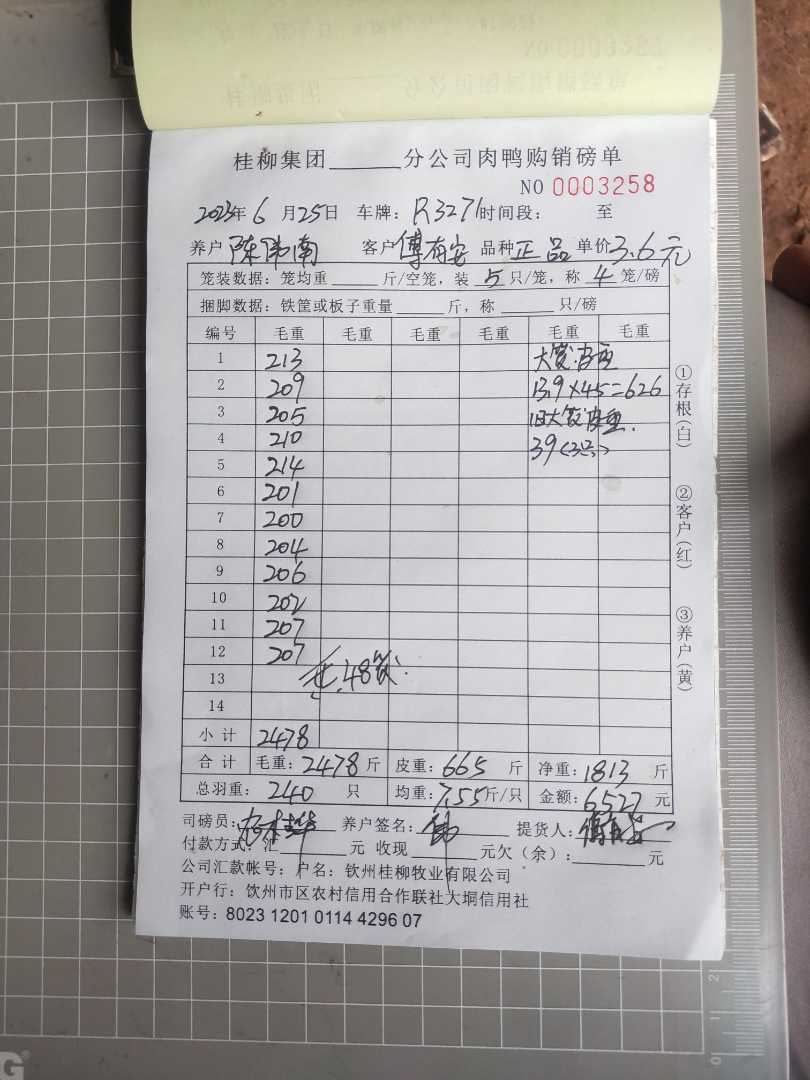 桂柳集团______分公司肉鸭购销磅单
NO 0003258
2023年 6 月 25日 车牌：R3271 时间段： 至
养户 陈伟南 客户 傅有安 品种 正品 单价 3.6元
笼装数据：笼均重______斤/空笼，装 5 只/笼，称 4 笼/磅
捆脚数据：铁筐或板子重量______斤，称______只/磅
编号 毛重 毛重 毛重 毛重 毛重 毛重
1 213 大笼.皮重
2 209 13.9×45=626
3 205 旧大笼皮重.
4 210 39(3只)
5 214
6 201
7 200
8 204
9 206
10 202
11 207
12 207
13 48笼
14
小 计 2478
合 计 毛重：2478 斤 皮重：665 斤 净重：1813 斤
总羽重： 240 只 均重：7.55斤/只 金额：6527 元
司磅员： 养户签名： 提货人：
付款方式：汇______元 收现______元欠（余）：______元
公司汇款帐号：户名：钦州桂柳牧业有限公司
开户行：钦州市区农村信用合作联社大垌信用社
账号：8023 1201 0114 4296 07
①存根(白)
②客户(红)
③养户(黄)